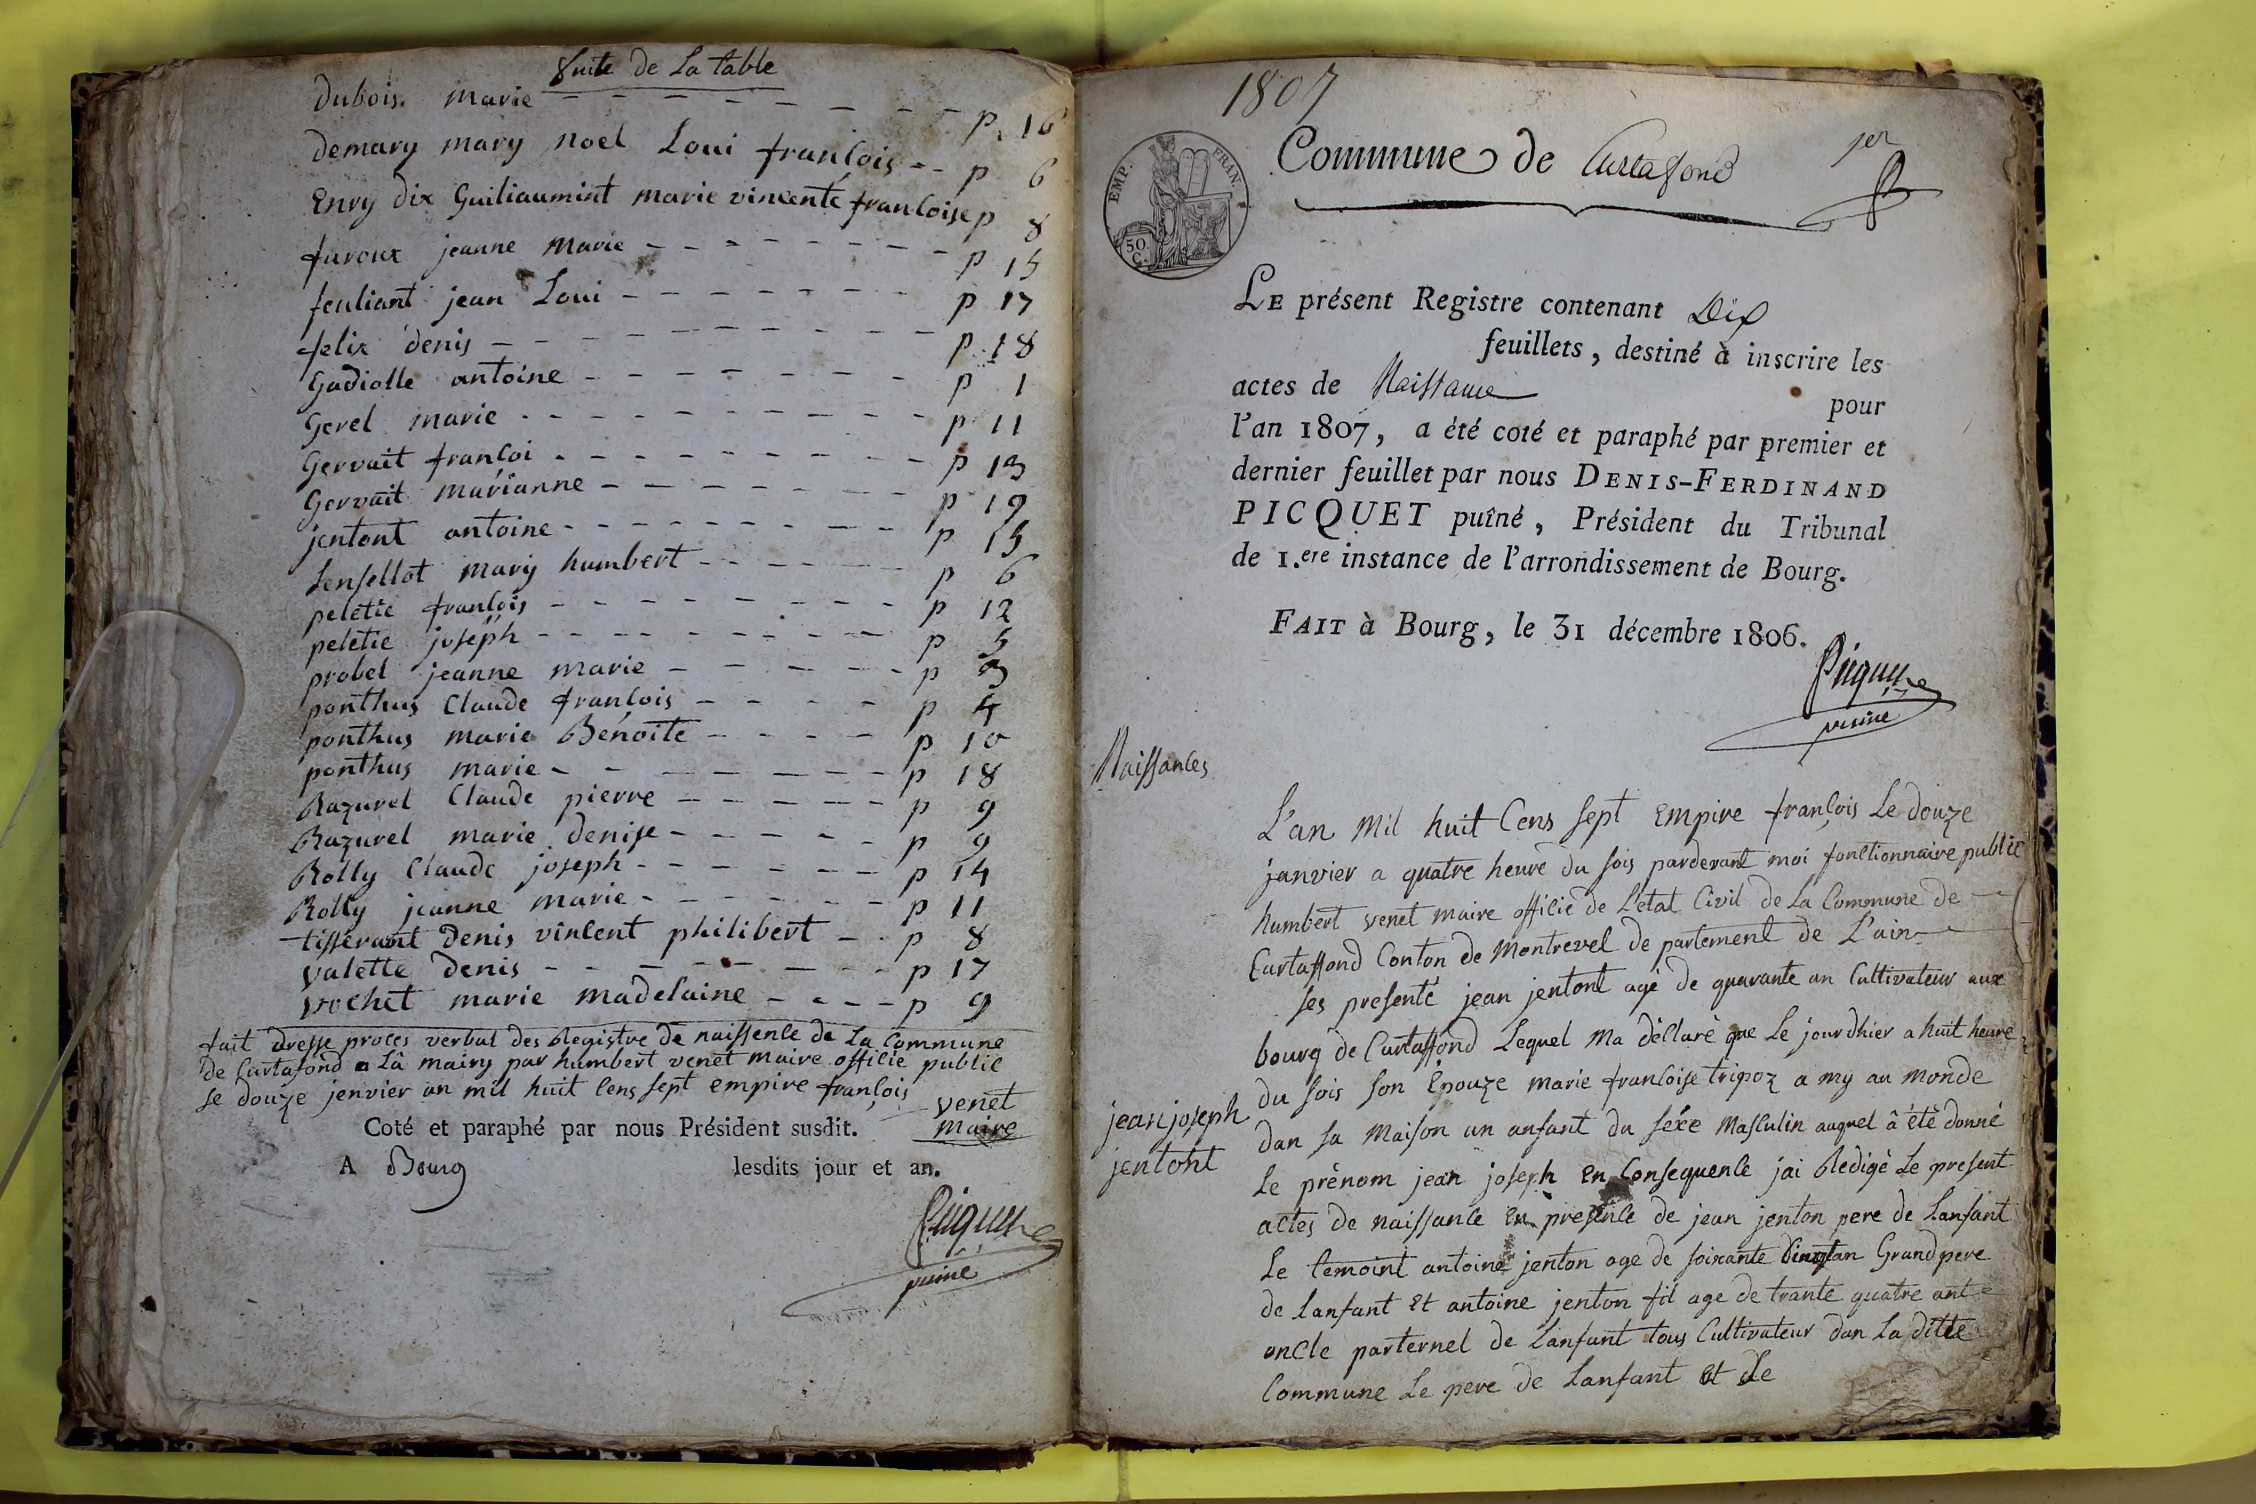 Suite de La table
dubois. marie - - - - - - - - p. 16
demary mary noel Loui françois - - p 6
Envy dix Guiliaumint marie vincente francoise p 8
furoux jeanne marie - - - - - - - - p 15
feuliant jean Loui - - - - - - - p 17
felix denis - - - - - - - - - p 18
Gadiolle antoine - - - - - - - p 1
Gerel marie - - - - - - - - - p 11
Gervait françoi - - - - - - - - p 13
Gervait marianne - - - - - - - p 19
jentont antoine - - - - - - - - p 15
Lensellot mary humbert - - - - - p 6
peletie françois - - - - - - - - p 12
peletie joseph - - - - - - - - p 5
probel jeanne marie - - - - - p 3
ponthus Claude françois - - - - p 4
ponthus marie Bénoite - - - - p 10
ponthus marie - - - - - - - p 18
Razurel Claude pierre - - - - - p 9
Razurel marie denise - - - - - p 9
Rolly Claude joseph - - - - - - p 14
Rolly jeanne marie - - - - - - p 11
tisserant denis vincent philibert - - p 8
valette denis - - - - - - - - p 17
vochet marie madelaine - - - - p 9
fait dresse proces verbal des Registre de naissence de La Commune
de Curtafond a Là mairy par humbert venet maire officie public
le douze jenvier an mil huit cens sept empire françois
venet
maire
Coté et paraphé par nous Président susdit.
A Bourg lesdits jour et an.
Picquet
puiné
1807
EMP. FRAN.
50 C.
Commune de Curtafond
1er
LE présent Registre contenant Dix
feuillets, destiné à inscrire les
actes de Naissance pour
l'an 1807, a été coté et paraphé par premier et
dernier feuillet par nous DENIS-FERDINAND
PICQUET puîné, Président du Tribunal
de 1.ere instance de l'arrondissement de Bourg.
FAIT à Bourg, le 31 décembre 1806.
Picquet
puiné
Naissances
L'an Mil huit Cens sept Empire françois Le douze
janvier a quatre heure du sois pardevant moi fonctionnaire public
humbert venet maire officié de Létat Civil de La Commune de
Curtaffond Conton de Montrevel de partement de L'ain
ses presenté jean jentont agé de quarante an Cultivateur aux
bourg de Curtaffond Lequel Ma déllaré que Le jourdhier a huit heure
du sois son Epouze marie françoise tripoz a my au monde
dan sa Maison un anfant du séxe Masculin auquel â été donné
Le prénom jean joseph en Consequence jai Redigé Le present
actes de naissance en presence de jean jenton pere de Lanfant
Le temoint antoine jenton age de soixante an Grand pere
de Lanfant Et antoine jenton fil age de trante quatre ant
oncle parternel de Lanfant tous Cultivateur dan La ditte
Commune Le pere de Lanfant et de
jean joseph
jentont